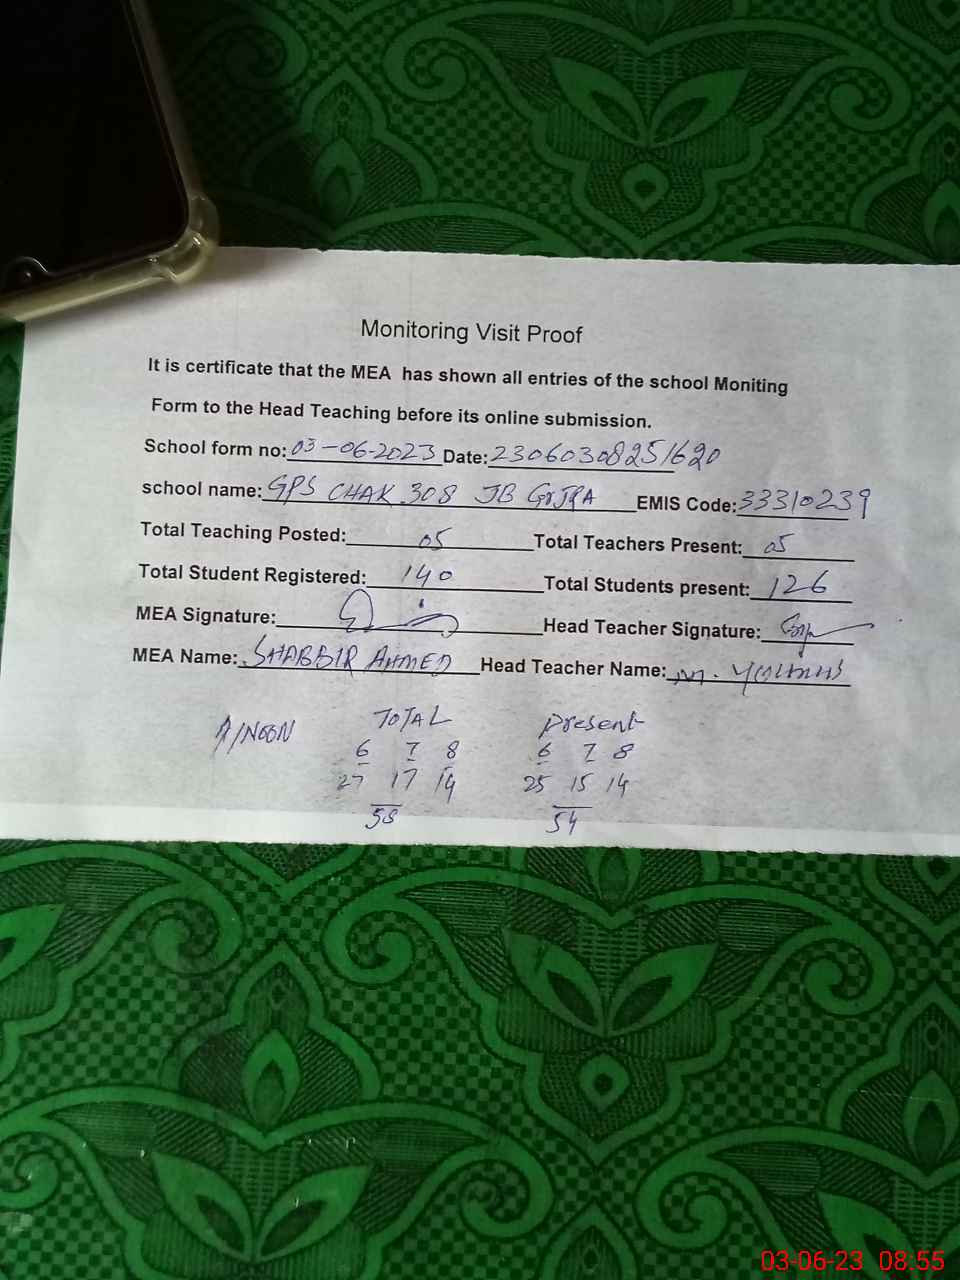 Monitoring Visit Proof
It is certificate that the MEA has shown all entries of the school Moniting
Form to the Head Teaching before its online submission.
School form no: 03-06-2023 Date: 23060308251620
school name: GPS CHAK 308 JB GOJRA EMIS Code: 33310239
Total Teaching Posted: 05 Total Teachers Present: 05
Total Student Registered: 140 Total Students present: 126
MEA Signature: Head Teacher Signature:
MEA Name: SHABBIR AHMED Head Teacher Name: M. YOUNUS
A/NOON TOTAL Present
6 7 8 6 7 8
27 17 14 25 15 14
58 54
03-06-23 08:55